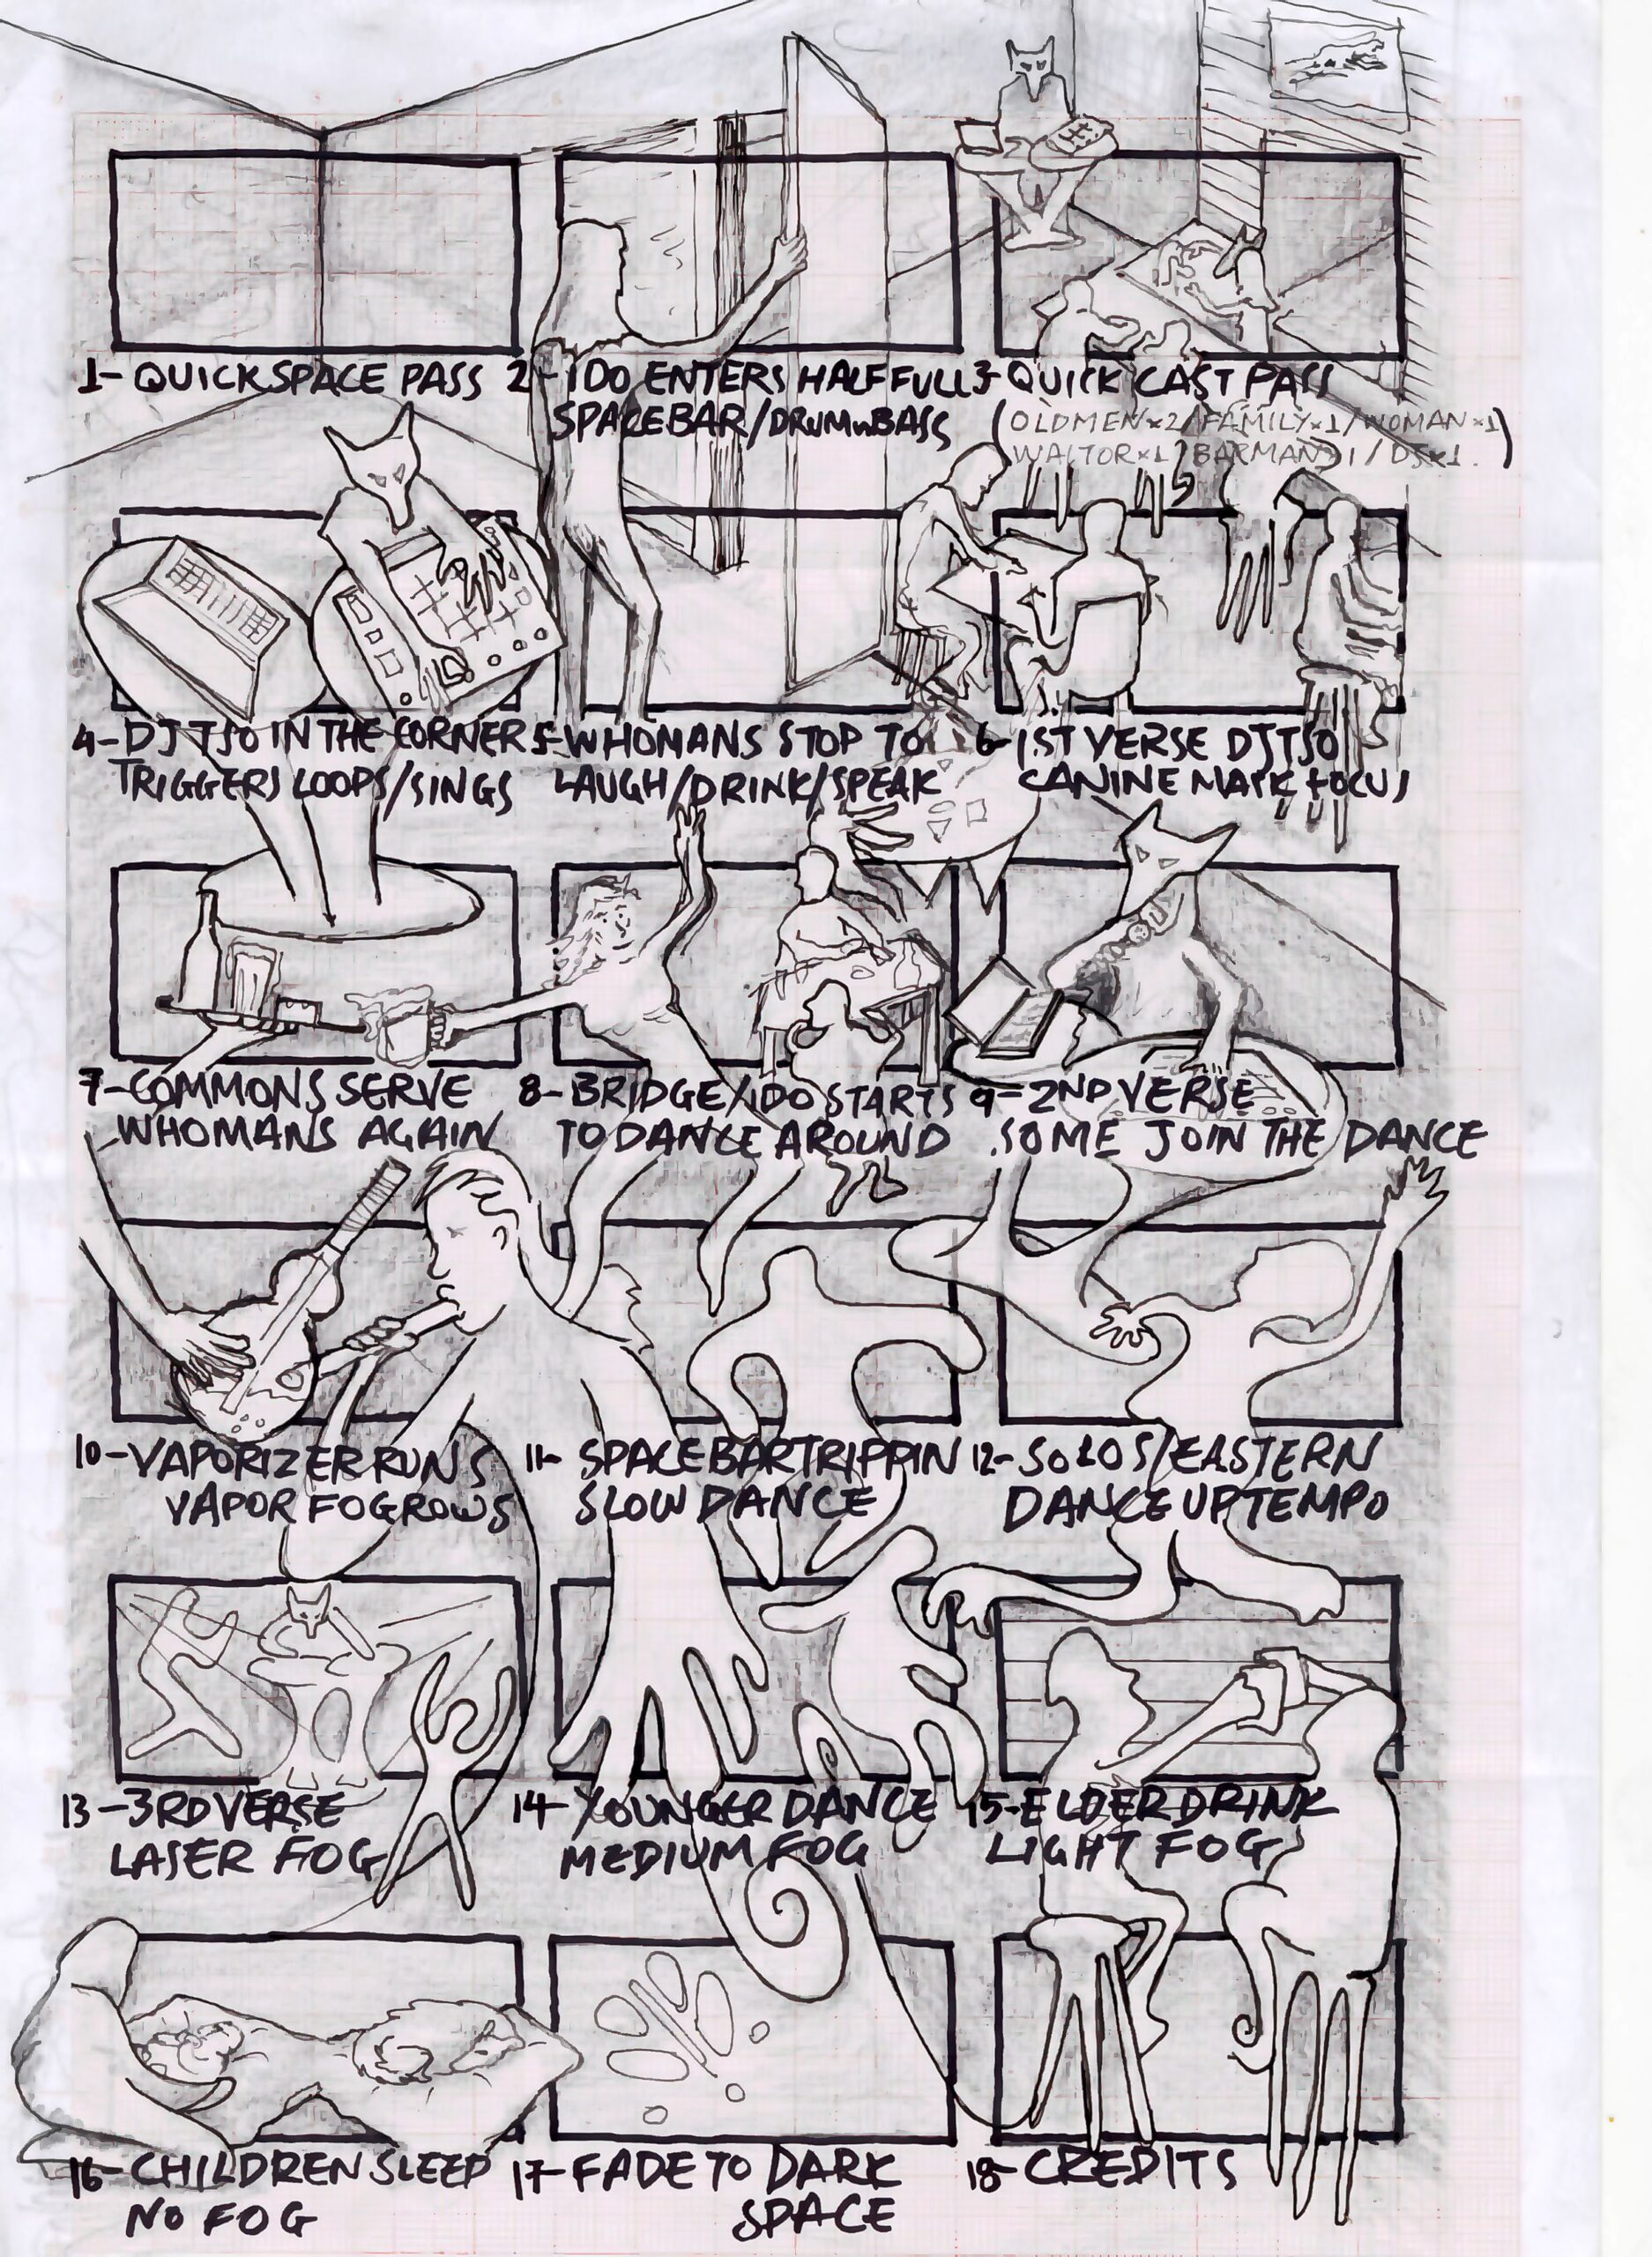 1- QUICK SPACE PASS
2- IDO ENTERS HALF FULL
SPACEBAR/DRUMnBASS
3- QUICK CAST PASS
(OLDMEN×2/FAMILY×1/WOMAN×1
WAITOR×1/BARMAN×1/DJ×1.)
4- DJ TSO IN THE CORNER
TRIGGERS LOOPS/SINGS
5- WHOMANS STOP TO
LAUGH/DRINK/SPEAK
6- 1ST VERSE DJTSO
CANINE MASK FOCUS
7- COMMONS SERVE
WHOMANS AGAIN
8- BRIDGE/IDO STARTS
TO DANCE AROUND
9- 2ND VERSE
SOME JOIN THE DANCE
10- VAPORIZER RUNS
VAPOR FOGROWS
11- SPACEBARTRIPPIN
SLOW DANCE
12- SOLOS/EASTERN
DANCE UPTEMPO
13- 3RD VERSE
LASER FOG
14- YOUNGER DANCE
MEDIUM FOG
15- ELDER DRINK
LIGHT FOG
16- CHILDREN SLEEP
NO FOG
17- FADE TO DARK
SPACE
18- CREDITS